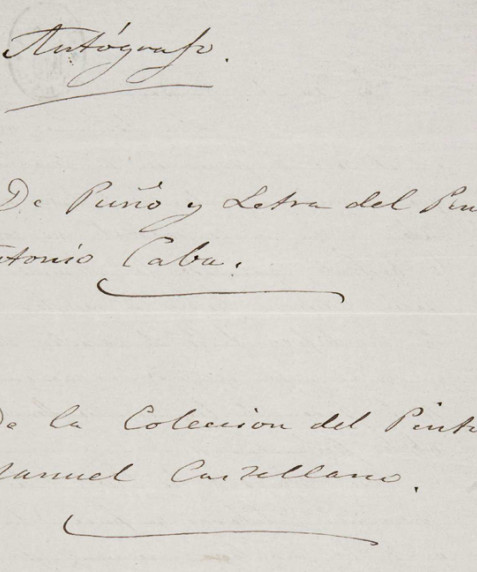 Autógrafo.
De Puño y Letra del Pin
ntonio Caba.
De la Coleccion del Pinto
Manuel Castellano.